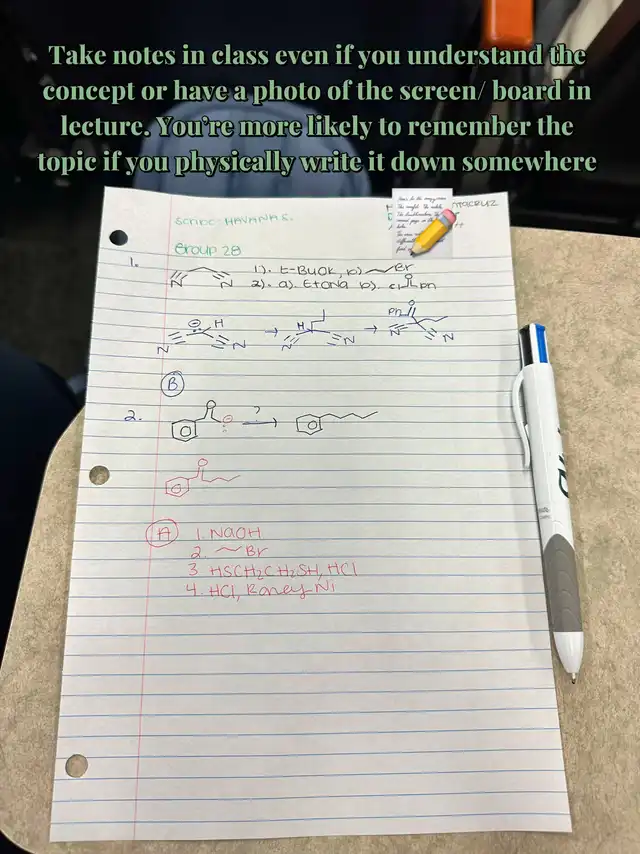 Take notes in class even if you understand the
concept or have a photo of the screen/ board in
lecture. You're more likely to remember the
topic if you physically write it down somewhere
Scribe: HAVANA S.
Group 28
1.
1). t-BuOK, b) Br
2). a). EtONa b). Cl O Ph
N N
⊖ H
N N → H N N → Ph O N N
B
2.
O ⊖ ? →
O
A 1. NaOH
2. Br
3 HSCH2CH2SH, HCl
4. HCl, Raney Ni